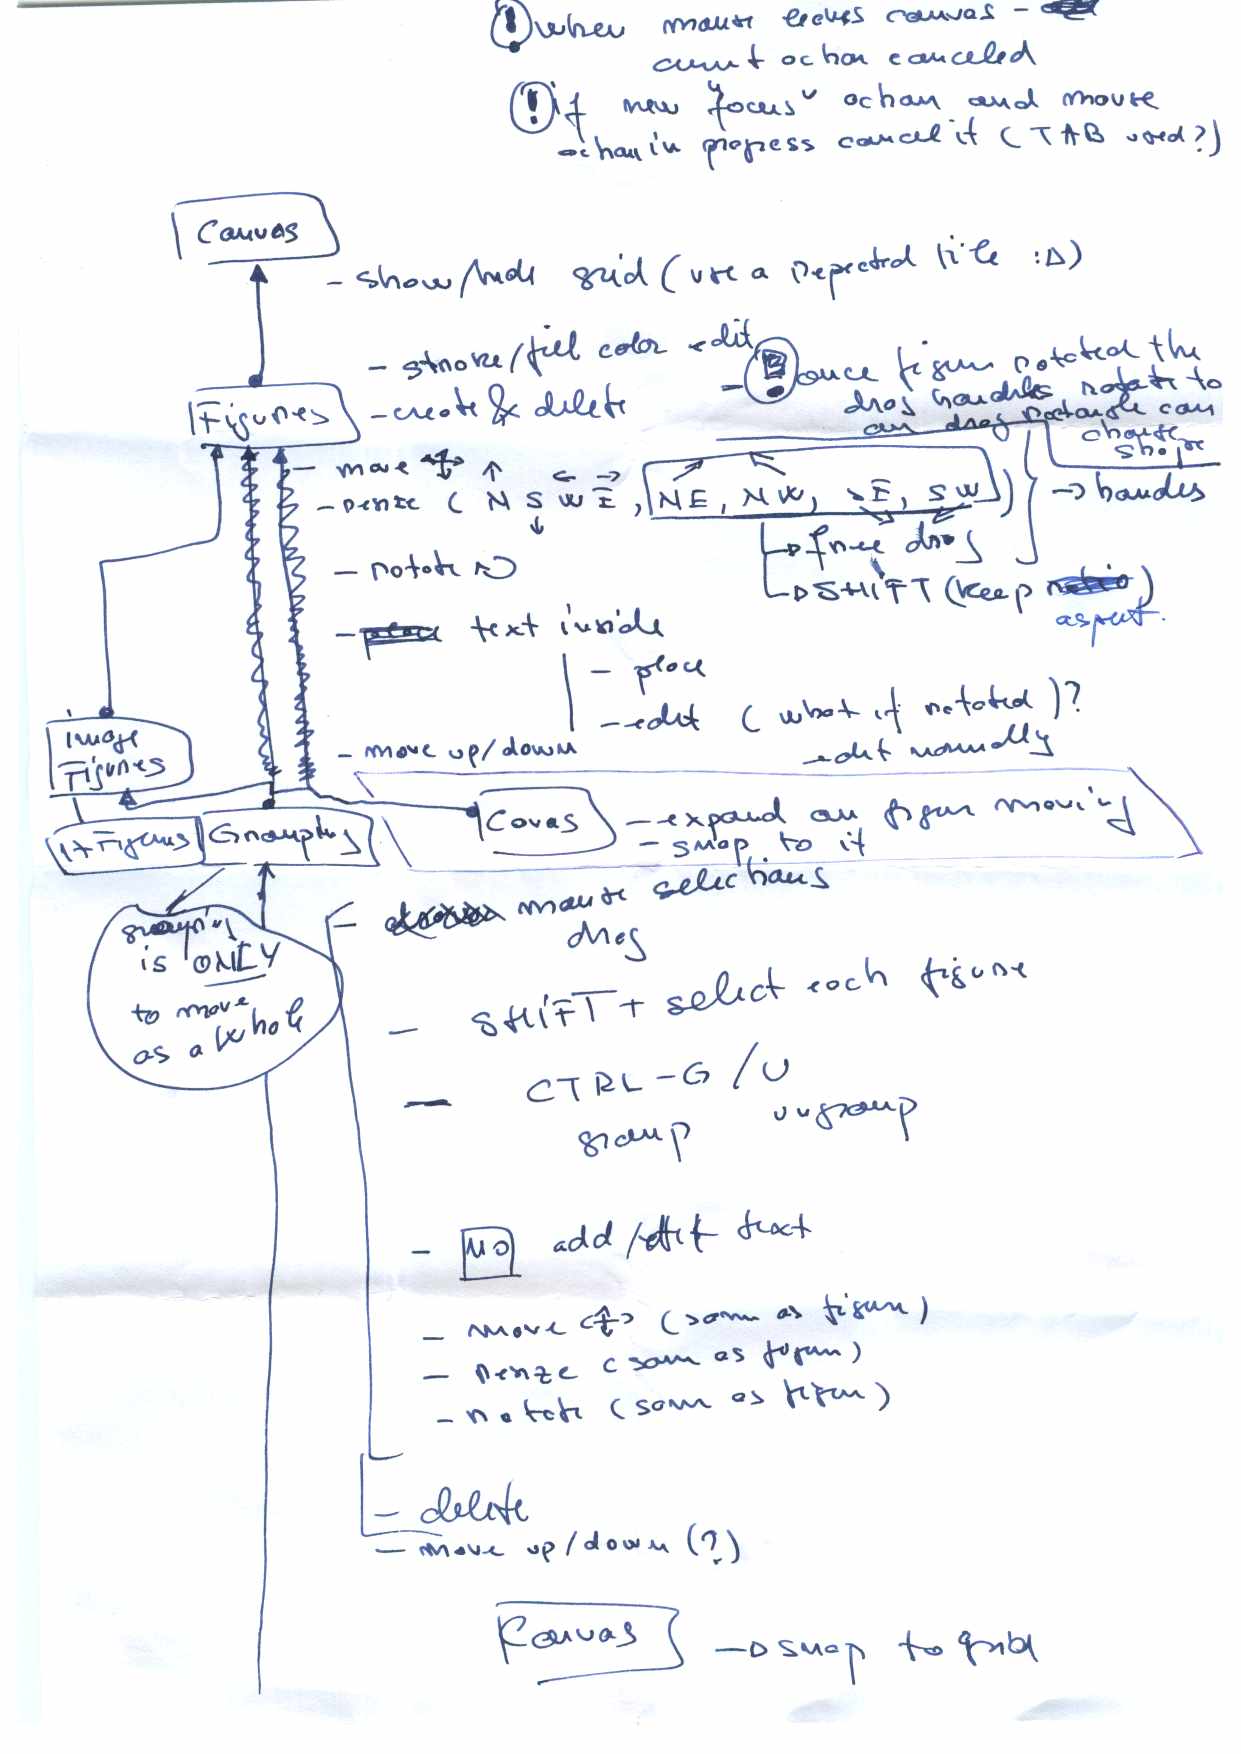 ! when mouse leaves canvas -
current action canceled
! if new "focus" action and mouse
action in progress cancel it (TAB used?)
Canvas
- show/hide grid (use a repected tile :D)
- stroke/fill color edit
Figures
- create & delete
- ! once figure rotated the
drag handles rotate to
an drag rectangle can
change
shape
- move
- resize (N S W E, NE, NW, SE, SW)
-> handles
-> free drag
-> SHIFT (keep ratio)
aspect.
- rotate
- place text inside
- place
- edit (what if rotated)?
edit normally
- move up/down
Image
Figures
Canvas
- expand on figure moving
- snap to it
1+ Figures
Grouping
- mouse selections
drag
grouping
is ONLY
to move
as a whole
- SHIFT + select each figure
- CTRL-G / U
group ungroup
- NO add/edit text
- move (same as figure)
- resize (same as figure)
- rotate (same as figure)
- delete
- move up/down (?)
Canvas
-> snap to grid